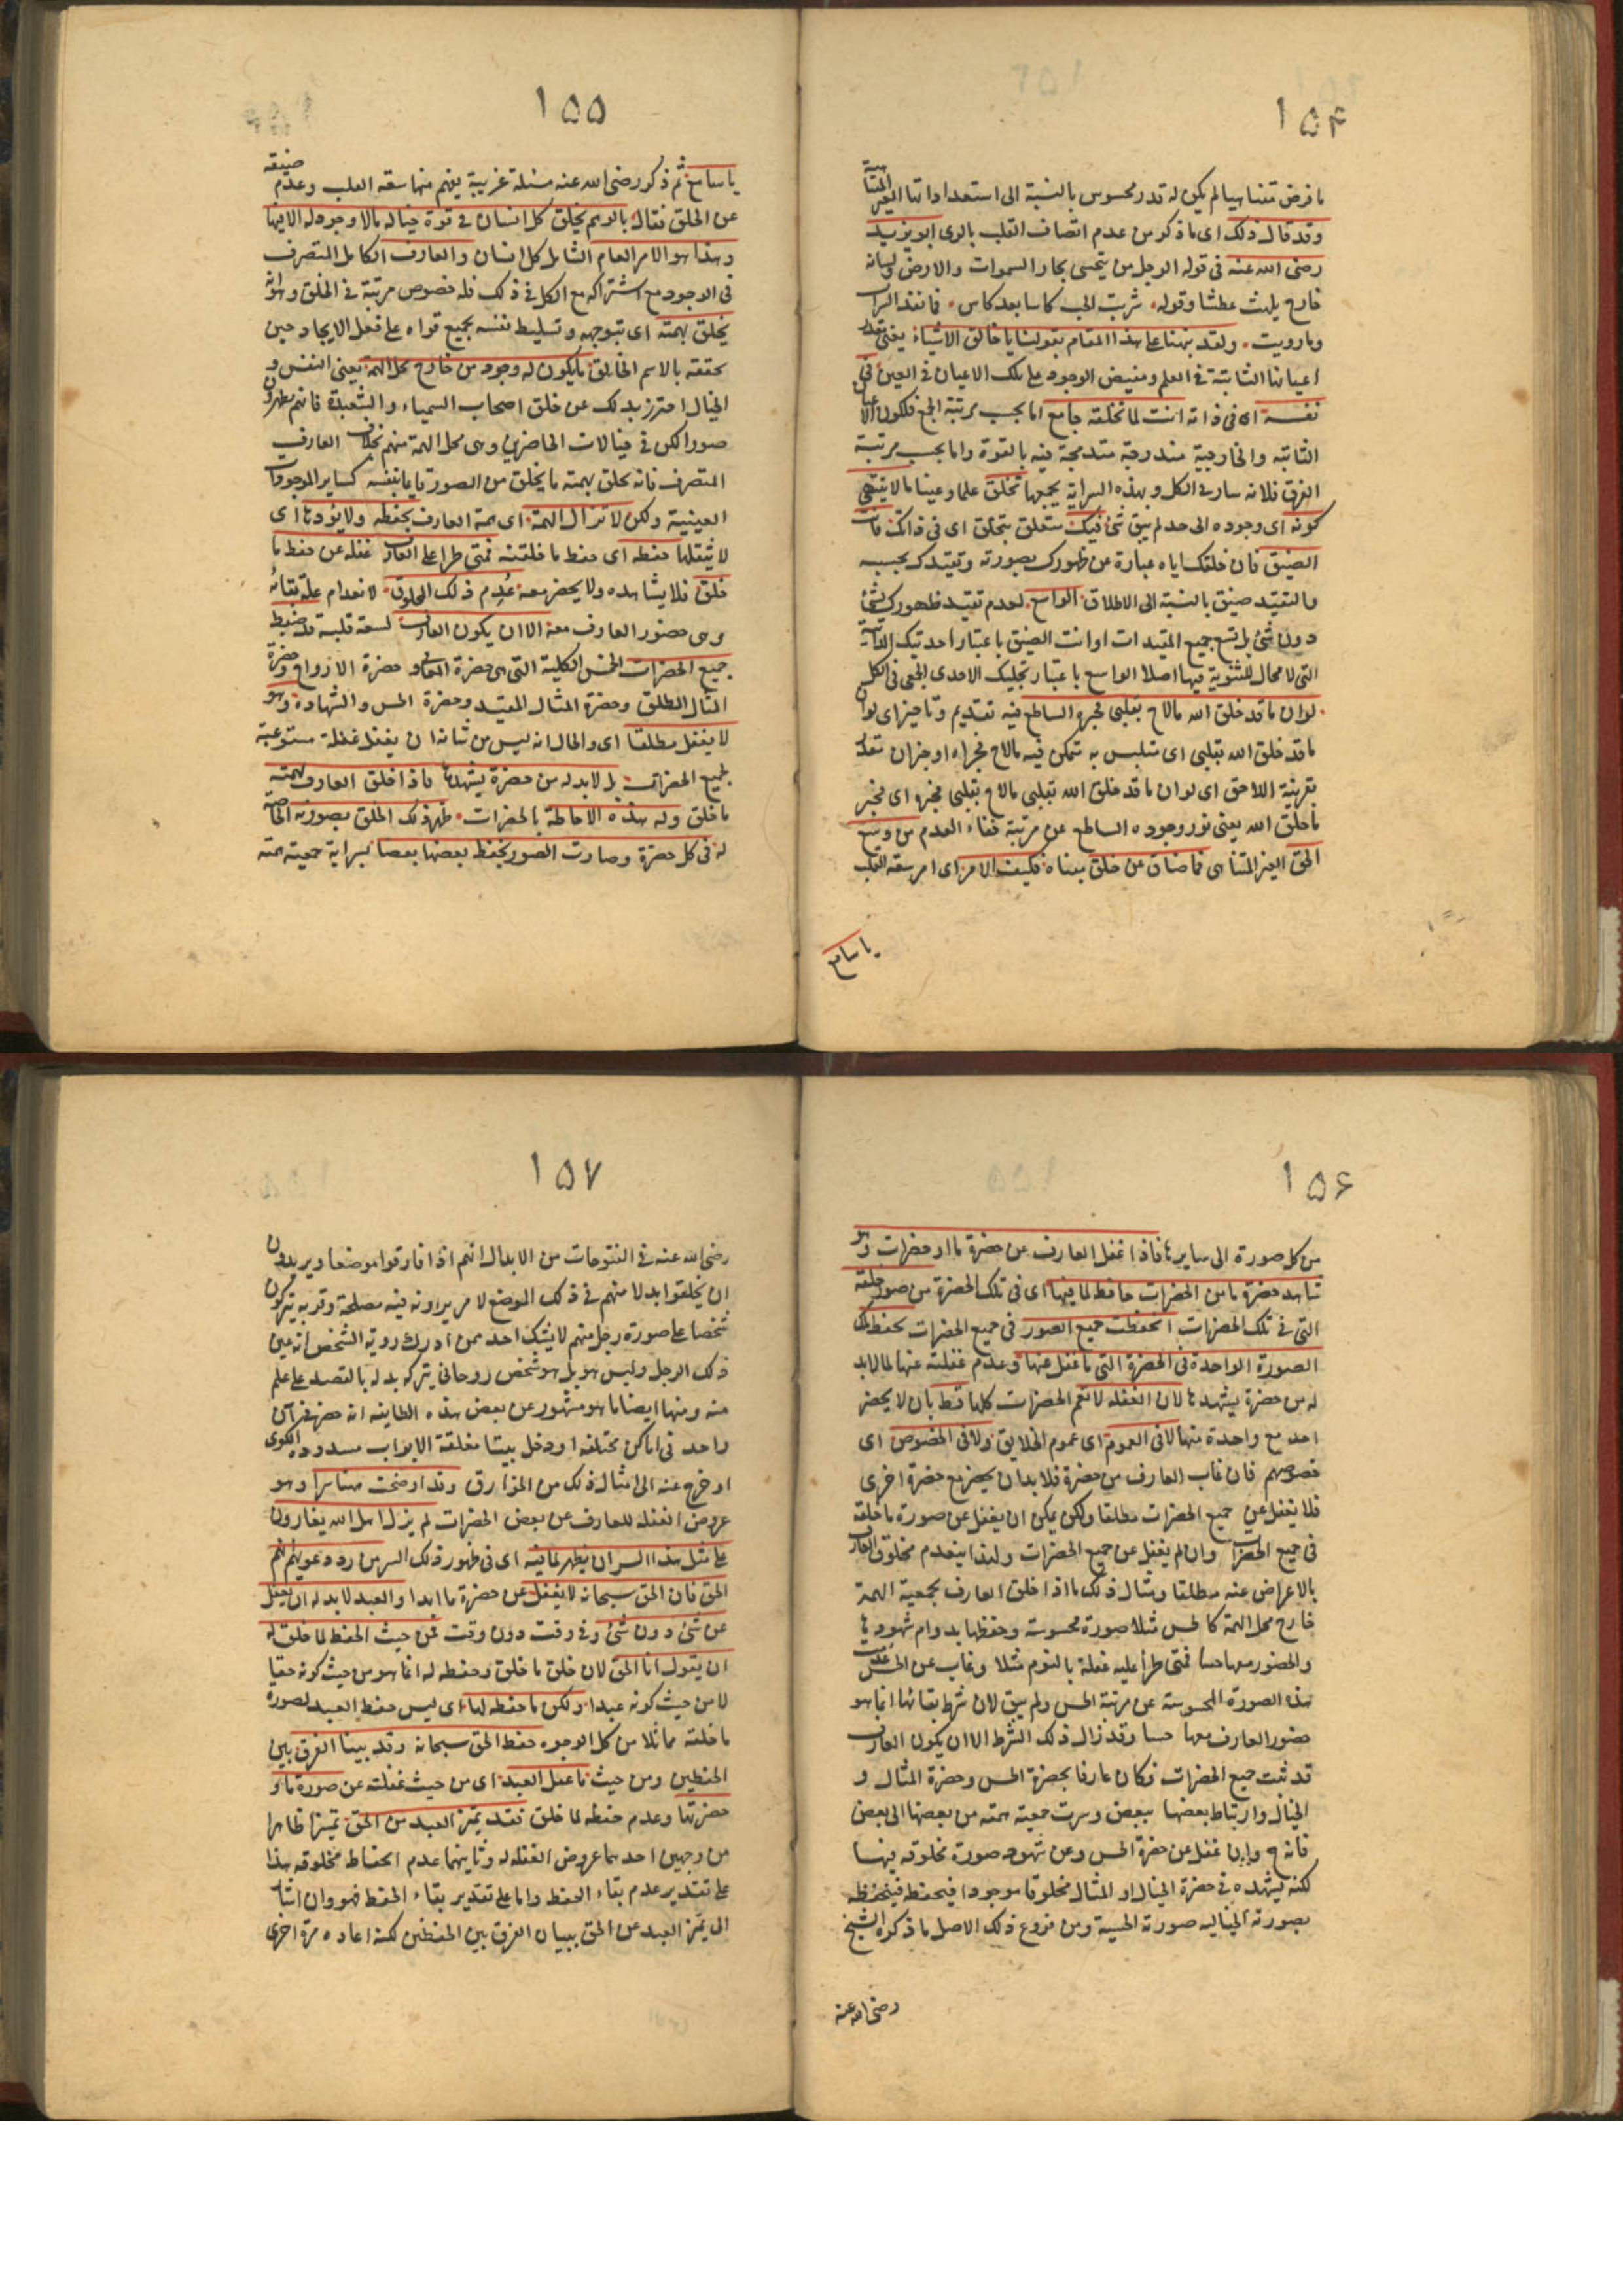 ۱۵۴
ما فرض متناهيا لم يكن له قدر محسوس بالنسبة الى استعداداتها الغير المتناهية
وقد قال ذلك اى ما ذكر من عدم اتصاف القلب بالرى ابو يزيد
رضى الله عنه فى قوله الرجل من يتحسى بحار السموات والارض ولسانه
خارج يلهث عطشا وقوله شربت الحب كاسا بعد كاس فما نفد الشراب
وما رويت ولقد نبهنا على هذا المقام بقولنا يا خالق الاشياء يعنى مقدر
اعيانها الثابتة فى العلم ومفيض الوجود على تلك الاعيان فى العين فى
نفسه اى فى ذاته انت لما تخلقه جامع اما بحسب مرتبة الجمع فلكون الاعيان
الثابته والخارجية مندرجة مندمجة فيه بالقوة واما بحسب مرتبة
الفرق فلانه سار فى الكل وبهذه السراية يجمعها تخلق علما وعينا ما لا ينتهى
كونه اى وجوده الى حد لم يبق شئ فيك متعلق بتخلق اى فى ذاتك فانت
الضيق فان خلقك اياه عبارة عن ظهورك بصورته وتقيدك بحسبه
والتقيد ضيق بالنسبة الى الاطلاق الواسع لعدم تقيد ظهورك بشئ
دون شئ بل تسع جميع المقيدات او انت الضيق باعتبار احديتك الذاتية
التى لا مجال للثنوية فيها اصلا الواسع باعتبار تجليك الاحدى الجمعى فى الكل
لو ان ما قد خلق الله ما لاح بقلبى فجره الساطع فيه تقديم وتاخير اى لو ان
ما قد خلق الله بقلبى اى متلبس به متمكن فيه ما لاح فجراه او خبر ان مقدر
بقرينة اللاحق اى لو ان ما قد خلق الله بقلبى ما لاح بقلبى فجره اى فجر
ما خلق الله يعنى نور وجوده الساطع عن مرتبة خفاء العدم من وسع
الحق الغير المتناهى فما ضاق عن خلق بمعناه فكيف الامر اى امر سعة القلب
يا سامع
۱۵۵
يا سامع ثم ذكر رضى الله عنه مسئلة غريبة يفهم منها سعه القلب وعدم ضيقه
عن الخلق فقال بالوهم يخلق كل انسان فى قوة خياله ما لا وجود له الا فيها
وهذا هو الامر العام الشامل كل انسان والعارف الكامل المتصرف
فى الوجود مع اشتراكه مع الكل فى ذلك فله خصوص مرتبة فى الخلق وهو انه
يخلق بهمته اى بتوجهه وتسليط نفسه بجميع قواه على فعل الايجاد حين
تحققه بالاسم الخالق ما يكون له وجود من خارج محل الهمة يعنى النفس و
الخيال احترز بذلك عن خلق اصحاب السيمياء والشعبذة فانهم يظهرون
صورا لكن فى خيالات الحاضرين وهى محل الهمة منهم بخلاف العارف
المتصرف فانه يخلق بهمته ما يخلق من الصور قايما بنفسه كساير الموجودات
العينية ولكن لا تزال الهمة اى همة العارف تحفظه ولا يؤدها اى
لا يثقلها حفظه اى حفظ ما خلقته فمتى طرا على العارف غفلة عن حفظ ما
خلق فلا يشاهده ولا يحضر معه عدم ذلك المخلوق لانعدام علة بقائه
وهى حضور العارف معه الا ان يكون العارف لسعة قلبه قد ضبط
جميع الحضرات الخمس الكلية التى هى حضرة المعانى وحضرة الارواح وحضرة
المثال المطلق وحضرة المثال المقيد وحضرة الحس والشهادة وهو
لا يغفل مطلقا اى والحال انه ليس من شانه ان يغفل غفلة مستوعبة
لجميع الحضرات بل لا بد له من حضرة يشهدها فاذا خلق العارف بهمته
ما خلق وله هذه الاحاطة بالحضرات ظهر ذلك الخلق بصورته الخاصة
له فى كل حضرة وصارت الصور يحفظ بعضها بعضا بسراية جمعية همته
۱۵۶
من كل صورة الى سايرها فاذا غفل العارف عن حضرة ما او حضرات وهو
شاهد حضرة ما من الحضرات حافظ لما فيها اى فى تلك الحضرة من صور خلقه
التى فى تلك الحضرات انحفظت جميع الصور فى جميع الحضرات بحفظ تلك
الصورة الواحدة فى الحضرة التى ما غفل عنها وعدم غفلته عنها لما لا بد
له من حضرة يشهدها لان الغفله لا تعم الحضرات كلها قط بان لا يحضر
احد مع واحدة منها لا فى العموم اى عموم الخلايق ولا فى الخصوص اى
خصوصهم فان غاب العارف من حضرة فلا بد ان يحضر مع حضرة اخرى
فلا يغفل عن جميع الحضرات مطلقا ولكن يمكن ان يغفل عن صورة ما خلقه
فى جميع الحضرات وان لم يغفل عن جميع الحضرات ولهذا ينعدم مخلوق العارف
بالاعراض عنه مطلقا ومثال ذلك ما اذا خلق العارف بجمعية الهمة
خارج محل الهمة كالحس مثلا صورة محسوسة وحفظها بدوام شهودها
والحضور معها حسا فمتى طرأ عليه غفلة بالنوم مثلا وغاب عن الحس عدمت
هذه الصورة المحسوسة عن مرتبة الحس ولم يبق لان شرط بقائها انما هو
حضور العارف معها حسا وقد زال ذلك الشرط الا ان يكون العارف
قد ثبت جميع الحضرات فكان عارفا بحضرة الحس وحضرة المثال و
الخيال وارتباط بعضها ببعض وسرت جمعية همته من بعضها الى بعض
فانه ح وان غفل عن حضرة الحس وعن شهود صورة مخلوقه فيها
لكنه يشهده فى حضرة الخيال او المثال مخلوقا موجودا فيحفظه فينحفظ
بصورته الخياليه صورته الحسية ومن فروع ذلك الاصل ما ذكره الشيخ
رضى الله عنه
۱۵۷
رضى الله عنه فى الفتوحات من الابدال انهم اذا فارقوا موضعا ويريدون
ان يخلقوا بدلا منهم فى ذلك الموضع لامر يراونه فيه مصلحة وقربة يتركون
شخصا على صورة رجل منهم لا يشك احد ممن ادرك روية الشخص انه عين
ذلك الرجل وليس هو بل هو شخص روحانى يتركه بدله بالقصد على علم
منه ومنها ايضا ما هو مشهور عن بعض هذه الطايفه انه حضر فى آن
واحد فى اماكن مختلفه او دخل بيتا مغلقة الابواب مسدودة الكوى
او خرج عنه الى امثال ذلك من الخوارق وقد اوضحت هنا سرا وهو
عروض الغفله للعارف عن بعض الحضرات لم يزل اهل الله يغارون
على مثل هذا السر ان يظهر لما فيه اى فى ظهور ذلك السر من رد دعويهم انهم
الحق فان الحق سبحانه لا يغفل عن حضرة ما ابدا والعبد لا بد له ان يغفل
عن شئ دون شئ وفى وقت دون وقت فمن حيث الحفظ لما خلق له
ان يقول انا الحق لان خلق ما خلق وحفظه له انما هو من حيث كونه حقا
لا من حيث كونه عبدا ولكن ما حفظه لها اى ليس حفظ العبد لصورة
ما خلقه مماثلا من كل الوجوه حفظ الحق سبحانه وقد بينا الفرق بين
الحفظين ومن حيث ما غفل العبد اى من حيث غفلته عن صورة ما و
حضرتها وعدم حفظه لما خلق فقد تميز العبد من الحق تميزا ظاهرا
من وجهين احدهما عروض الغفله له وثانيهما عدم انحفاظ مخلوقه هذا
على تقدير عدم بقاء الحفظ واما على تقدير بقاء الحفظ فهو وان اشار
الى تميز العبد من الحق ببيان الفرق بين الحفظين لكنه اعاده مرة اخرى